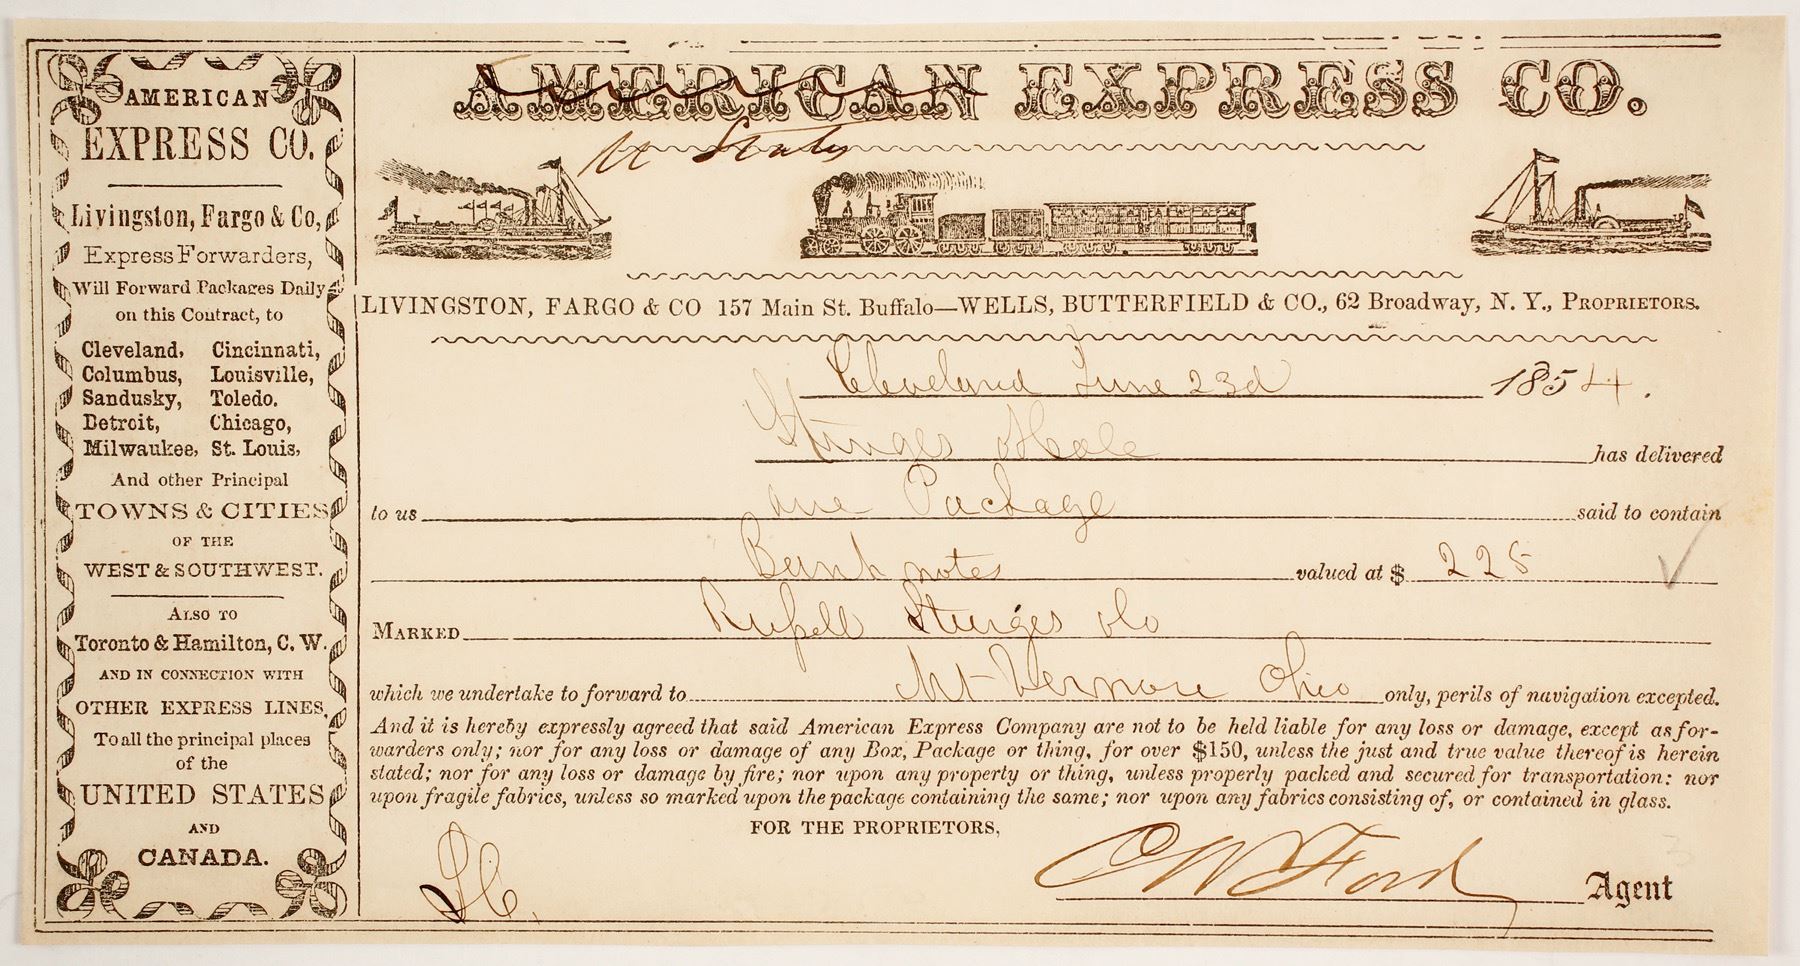 AMERICAN
EXPRESS CO.
Livingston, Fargo & Co,
Express Forwarders,
Will Forward Packages Daily
on this Contract, to
Cleveland, Cincinnati,
Columbus, Louisville,
Sandusky, Toledo.
Detroit, Chicago,
Milwaukee, St. Louis,
And other Principal
TOWNS & CITIES
OF THE
WEST & SOUTHWEST.
ALSO TO
Toronto & Hamilton, C. W.
AND IN CONNECTION WITH
OTHER EXPRESS LINES,
To all the principal places
of the
UNITED STATES
AND
CANADA.
AMERICAN EXPRESS CO.
U States
LIVINGSTON, FARGO & CO 157 Main St. Buffalo—WELLS, BUTTERFIELD & CO., 62 Broadway, N. Y., PROPRIETORS.
Cleveland June 23d 1854.
Sturges & Hale has delivered
to us one Package said to contain
Bank notes valued at $ 228
MARKED Russell Sturges & Co
which we undertake to forward to Mt Vernon Ohio only, perils of navigation excepted.
And it is hereby expressly agreed that said American Express Company are not to be held liable for any loss or damage, except as for-
warders only; nor for any loss or damage of any Box, Package or thing, for over $150, unless the just and true value thereof is herein
stated; nor for any loss or damage by fire; nor upon any property or thing, unless properly packed and secured for transportation: nor
upon fragile fabrics, unless so marked upon the package containing the same; nor upon any fabrics consisting of, or contained in glass.
FOR THE PROPRIETORS,
C W Ford Agent